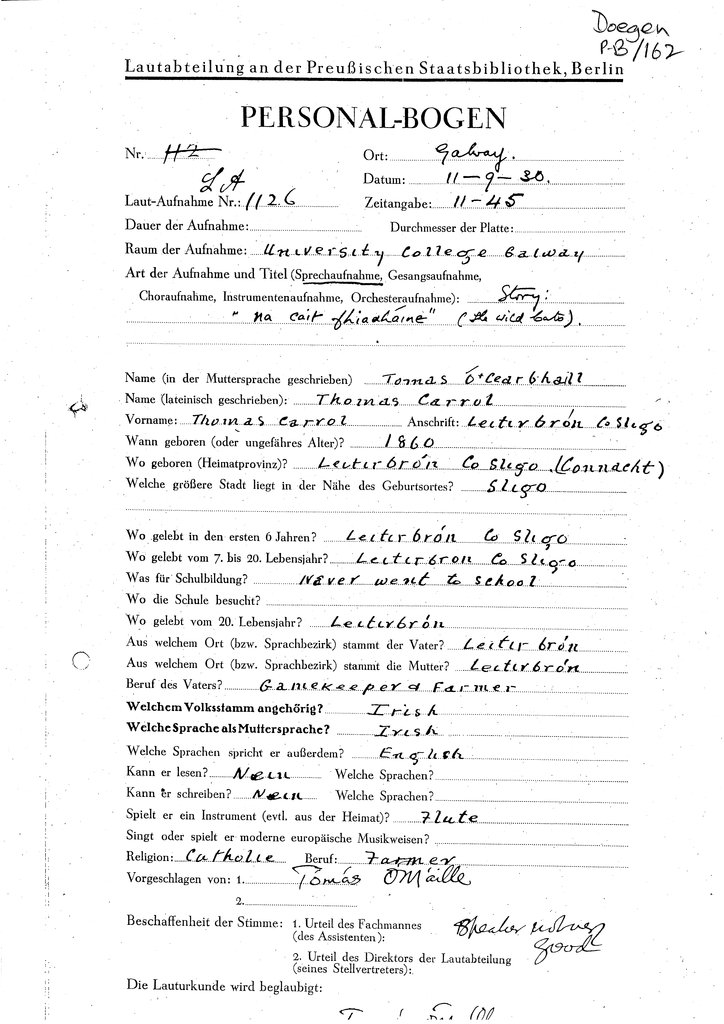 Doegen
P-B/162
Lautabteilung an der Preußischen Staatsbibliothek, Berlin
PERSONAL-BOGEN
Nr. 112 Ort: Galway.
LA Datum: 11-9-30.
Laut-Aufnahme Nr.: 1126 Zeitangabe: 11-45
Dauer der Aufnahme: Durchmesser der Platte:
Raum der Aufnahme: University College Galway
Art der Aufnahme und Titel (Sprechaufnahme, Gesangsaufnahme,
Choraufnahme, Instrumentenaufnahme, Orchesteraufnahme): Story:
"na cait fhiadháine" (the wild cats).
Name (in der Muttersprache geschrieben) Tomas ó Cearbhaill
Name (lateinisch geschrieben): Thomas Carrol
Vorname: Thomas Carrol Anschrift: Leitirbrón Co Sligo
Wann geboren (oder ungefähres Alter)? 1860
Wo geboren (Heimatprovinz)? Leitirbrón Co Sligo (Connacht)
Welche größere Stadt liegt in der Nähe des Geburtsortes? Sligo
Wo gelebt in den ersten 6 Jahren? Leitirbrón Co Sligo
Wo gelebt vom 7. bis 20. Lebensjahr? Leitirbron Co Sligo
Was für Schulbildung? Never went to school
Wo die Schule besucht?
Wo gelebt vom 20. Lebensjahr? Leitirbrón
Aus welchem Ort (bzw. Sprachbezirk) stammt der Vater? Leitir brón
Aus welchem Ort (bzw. Sprachbezirk) stammt die Mutter? Leitirbrón
Beruf des Vaters? Gamekeeper & Farmer
Welchem Volksstamm angehörig? Irish
Welche Sprache als Muttersprache? Irish
Welche Sprachen spricht er außerdem? English
Kann er lesen? Nein Welche Sprachen?
Kann er schreiben? Nein Welche Sprachen?
Spielt er ein Instrument (evtl. aus der Heimat)? Flute
Singt oder spielt er moderne europäische Musikweisen?
Religion: Catholic Beruf: Farmer
Vorgeschlagen von: 1. Tomás OMáille
2.
Beschaffenheit der Stimme: 1. Urteil des Fachmannes
(des Assistenten): Speaker not very
good
2. Urteil des Direktors der Lautabteilung
(seines Stellvertreters):
Die Lauturkunde wird beglaubigt: